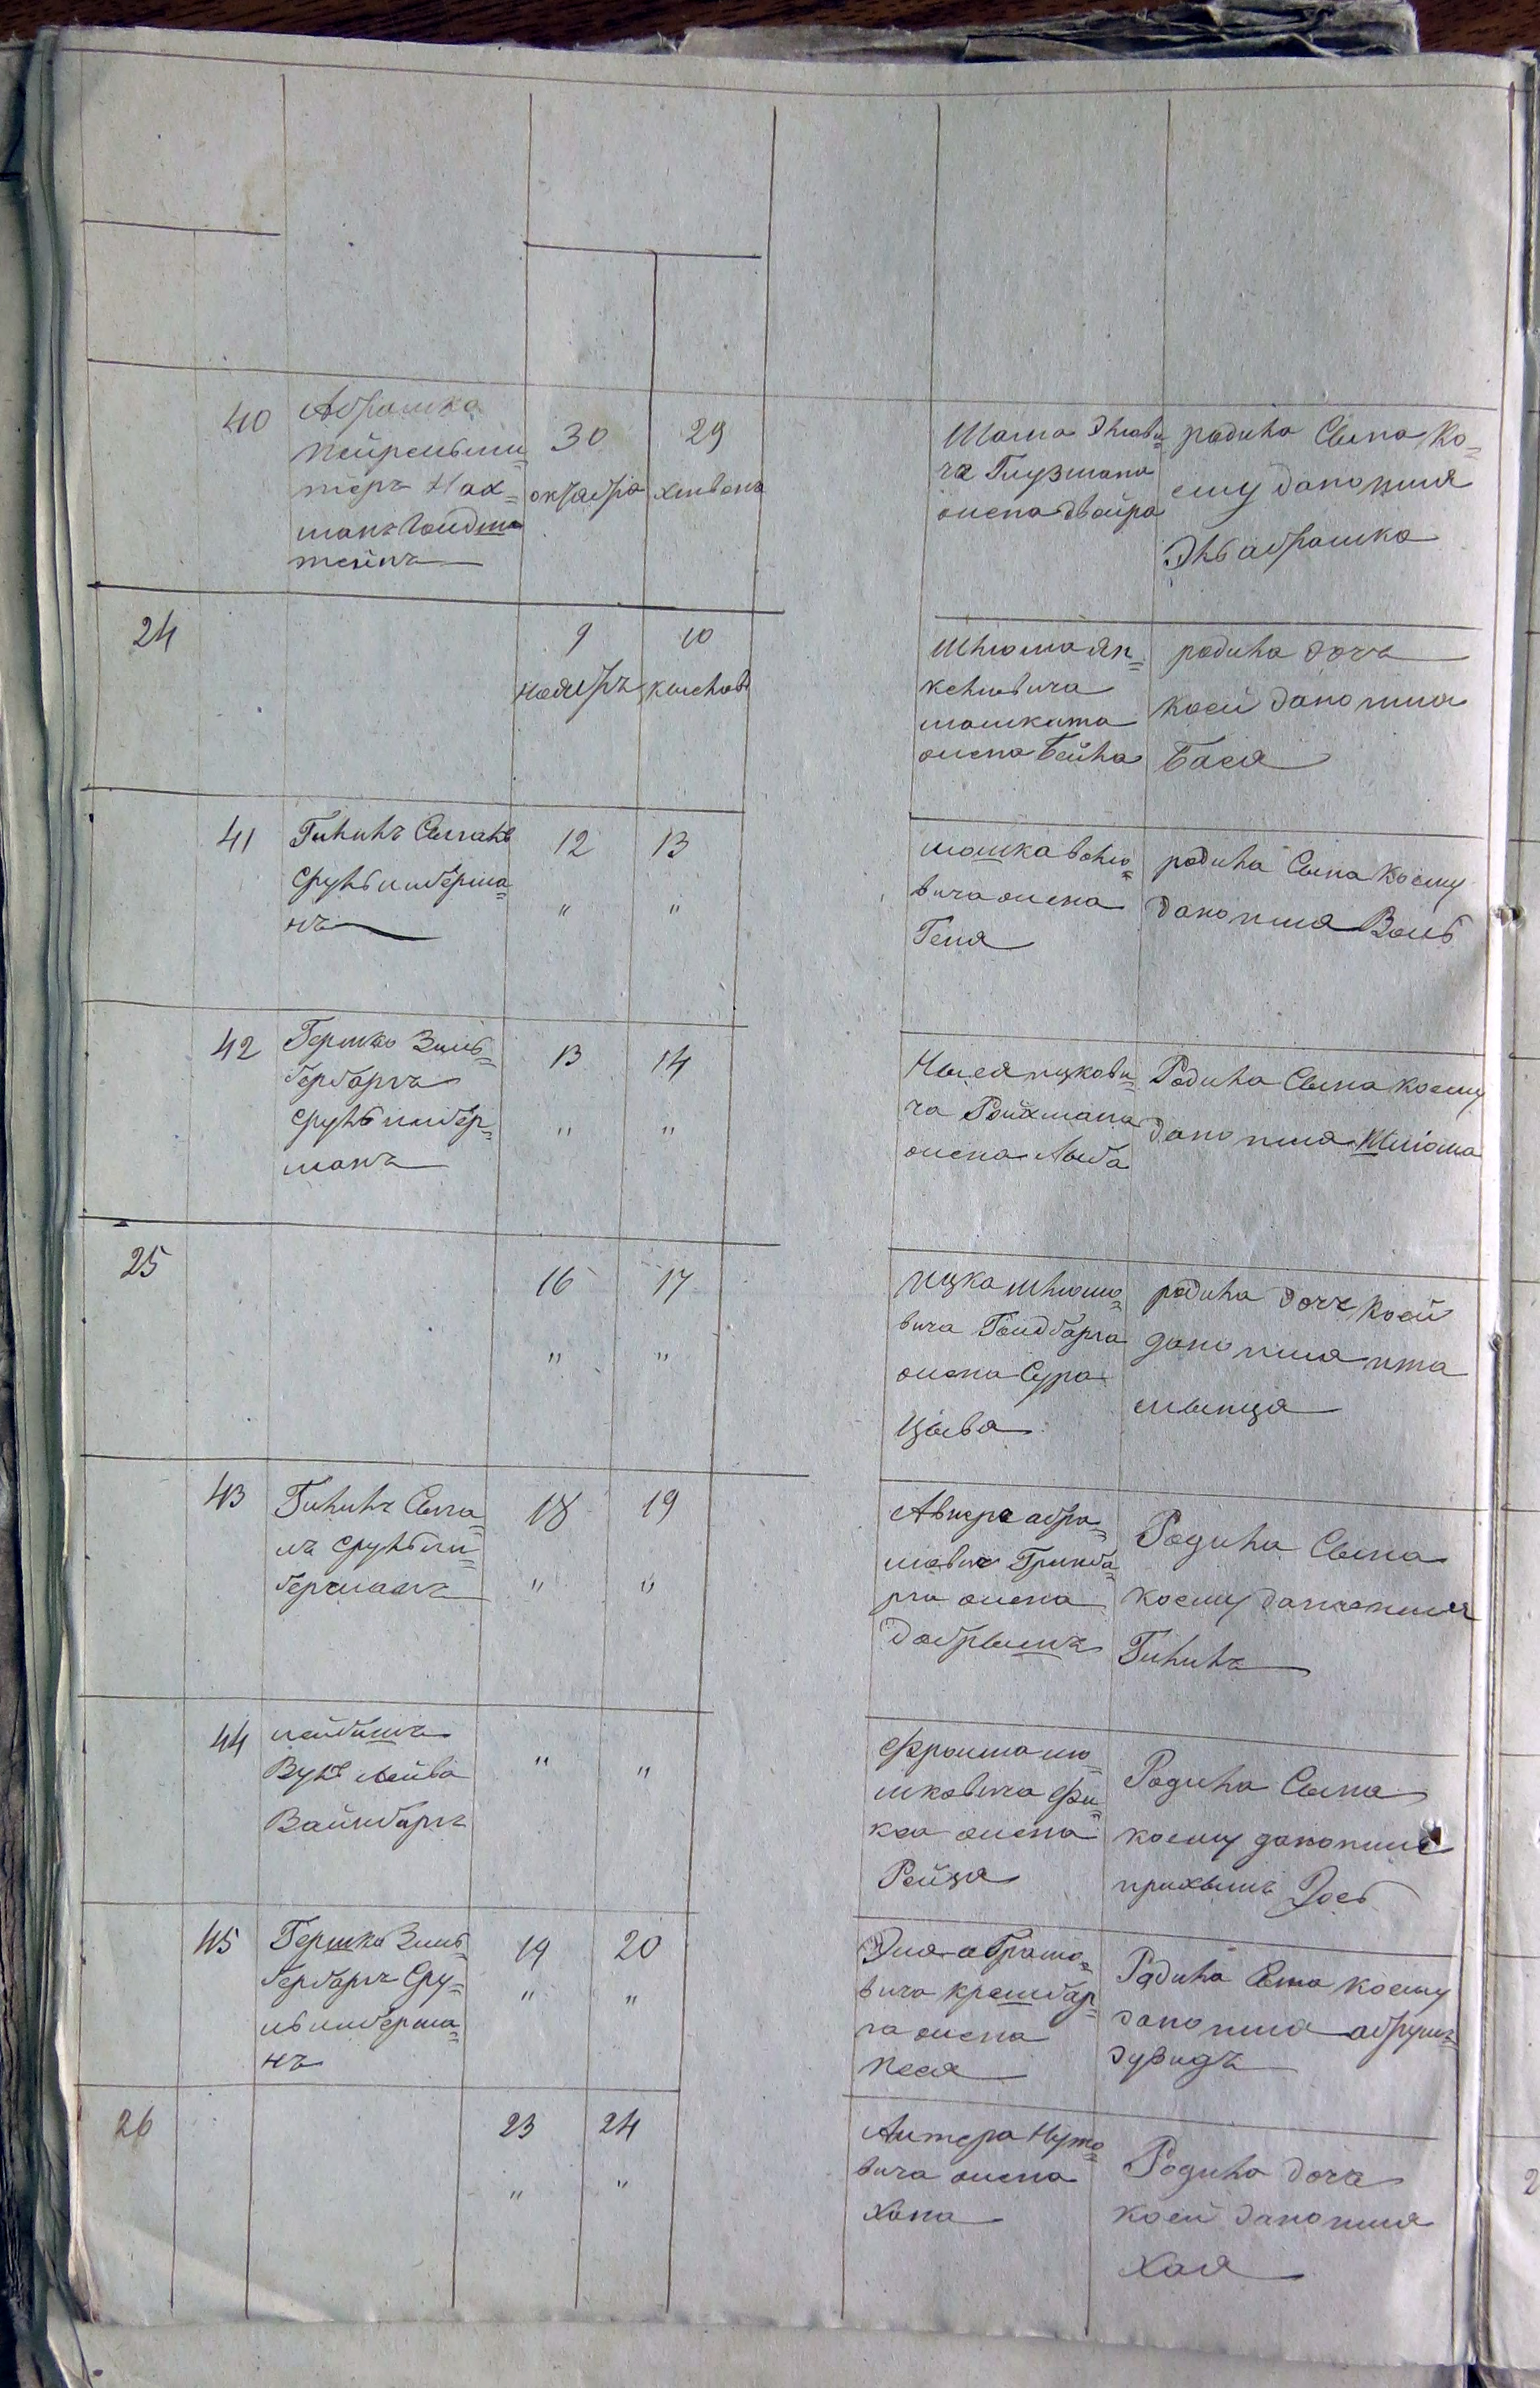 40
Абрашко
Пейрельши=
теръ Нах=
манъ Гольдш
тейнъ
30
октября
29
хешвонъ
ча Глузмана
жена Двойра
родила Сына ко=
ему дано имя
Эль абрашко
24
9
ноября
10
кислевъ
мошката
жена Бейла
родила дочь
коей дано имя
Бася
41
Гилилъ
Сруль либерма=
нъ
12
"
13
"
мошка Волю=
вича жена
Геня
родила Сына коему
дано имя Воль
42
Гершко Зиль=
бербаргъ
Сруль либер=
манъ
13
"
14
"
ицкови=
ча Ройхмана
жена
Родила Сына коему
дано имя Шлiома
25
16
"
17
"
ицка шлiомо=
вича Гольдбарга
жена Сура
Цыва
родила дочь коей
дано имя ита
43
Гилилъ
Сруль ли=
берманъ
18
"
19
"
абра=
мовича Гринба=
рга жена
Добрышъ
Родила Сына
коему дано имя
Гилилъ
44
лейбишъ
Вулъ лейба
Вайнбаргъ
"
"
Фроима мо
шковича
жена
Рейзя
Родила Сына
коему дано имя
45
Гершко Зиль=
бербаргъ Сру=
ль либерма=
нъ
19
"
20
"
Эля абрамо=
вича
га жена
Песя
Родила Сына коему
дано имя абрумъ=
дувидъ
26
23
"
24
"
Алтера Нуто=
вича жена
Хана
Родила дочь
коей дано имя
Хая